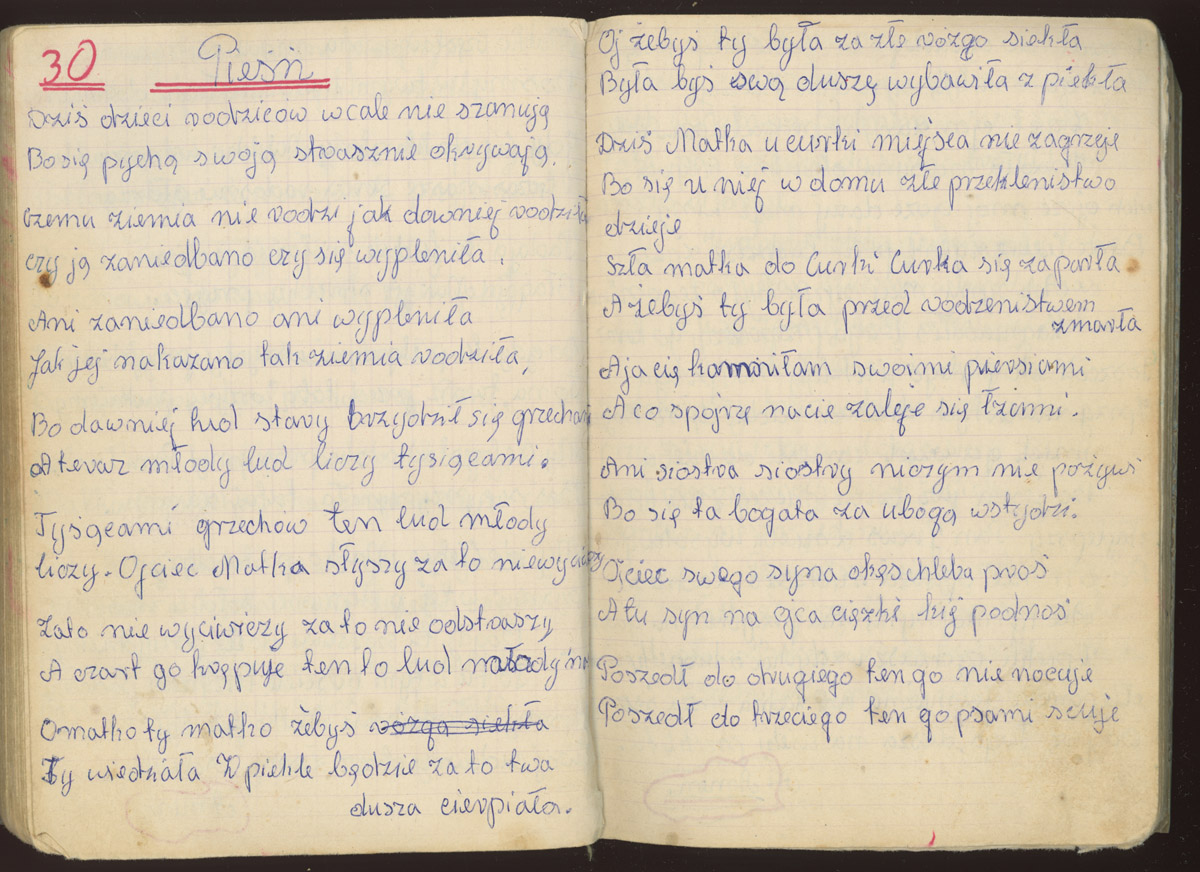 30 Pieśń
Dziś dzieci rodziców wcale nie szanują
Bo się pychą swoją strasznie okrywają.
Czemu ziemia nie rodzi jak dawniej rodziła
czy ją zaniedbano czy się wypleniła.
Ani zaniedbano ani wypleniła
Jak jej nakazano tak ziemia rodziła,
Bo dawniej lud stary brzydził się grzechami
A teraz młody lud liczy tysiącami.
Tysiącami grzechów ten lud młody
liczy. Ojciec Matka słyszy za to niewyćwiczy
Zato nie wyciwiczy za to nie odstraszy
A czart go krępuje ten to lud
O matko ty matko żebyś rózgą siekła
Ty wiedziała W piekle będzie za to twa
dusza cierpiała.
Oj żebyś ty była za złe rózgo siekła
Była byś swą duszę wybawiła z piekła
Dziś Matka u curki miejsca nie zagrzeje
Bo się u niej w domu złe przeklenistwo
dzieje
Szła matka do Curki Curka się zaparła
A żebyś ty była przed rodzenistwem
zmarła
A ja cię karmiłam swoimi piersiami
A co spojrzę nacie zaleje się łzami.
Ani siostra siostry niczym nie pożywi
Bo się ta bogata za ubogą wstydzi.
Ojciec swego syna okęschleba prosi
A tu syn na ojca ciężki kij podnosi
Poszedł do drugiego ten go nie nocuje
Poszedł do trzeciego ten go psami szcuje